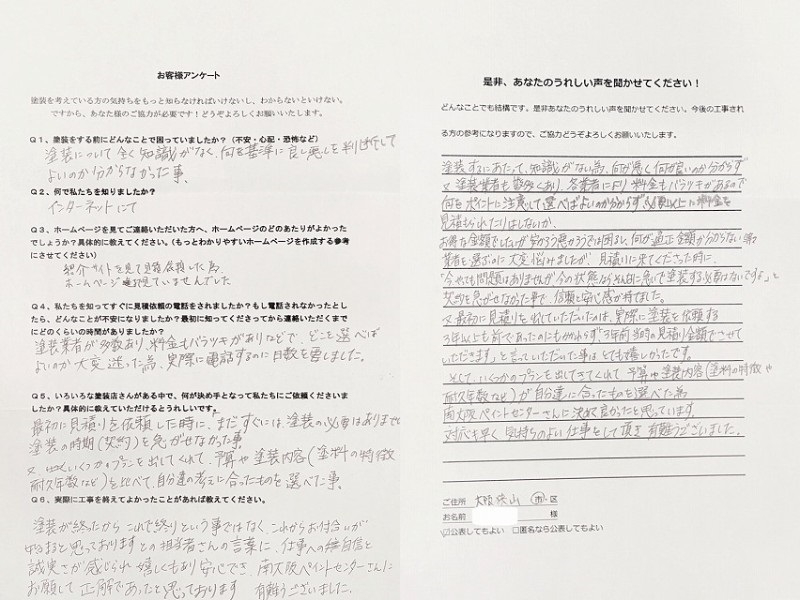 お客様アンケート
塗装を考えている方の気持ちをもっと知らなければいけないし、わからないといけない。
ですから、あなた様のご協力が必要です！どうぞよろしくお願いいたします。
Q1、塗装をする前にどんなことで困っていましたか？（不安・心配・恐怖など）
塗装について全く知識がなく、何を基準に良し悪しを判断して
よいのか分からなかった事、
Q2、何で私たちを知りましたか？
インターネットにて
Q3、ホームページを見てご連絡いただいた方へ、ホームページのどのあたりがよかった
でしょうか？具体的に教えてください。（もっとわかりやすいホームページを作成する参考
にさせてください）
紹介サイトを見て直接依頼した為
ホームページは見ていませんでした
Q4、私たちを知ってすぐに見積依頼の電話をされましたか？もし電話されなかったとし
たら、どんなことが不安になりましたか？最初に知ってさってから連絡いただくまで
にどのくらいの時間がありましたか？
塗装業者が多数あり、料金もバラツキがありなどで、どこを選べば
よいのか大変迷った為、実際に電話するのに日数を要しました。
Q5、いろいろな塗装店さんがある中で、何が決め手となって私たちにご依頼くださいま
したか？具体的に教えていただけるとうれしいです。
最初に見積りを依頼した時に、まだすぐには、塗装の必要はありません
塗装の時期（契約）を急がせなかった事。
又、いくつかのプランを出してくれて、予算や塗装内容（塗料の特徴
耐久年数など）を比べて、自分達の考えに合ったものを選べた事、
Q6、実際に工事を終えてよかったことがあれば教えてください。
塗装が終ったから これで終りという事ではなく、これからお付合いが
始まると思っておりますとの担当者さんの言葉に、仕事への自信と
誠実さが感じられ 嬉しくもあり安心でき、南大阪ペイントセンターさんに
お願して 正解であったと思っております 有難うございました。
是非、あなたのうれしい声を聞かせてください！
どんなことでも結構です。是非あなたのうれしい声を聞かせてください。今後の工事され
る方の参考になりますので、ご協力どうぞよろしくお願いいたします。
塗装するにあたって、知識がない為、何が悪く何が良いのか分からず
又 塗装業者も数多くあり、各業者により料金もバラツキがあるので
何をポイントに注意して選べばよいのか分からず、必要以上に料金を
見積もられたりはしないか、
お得な金額でしたいが安かろう悪かろうでは困るし、何が適正金額か分からない為
業者を選ぶのに大変悩みましたが、見積りに来てくださった時に、
「今やっても問題はありませんが今の状態ならそんなに急いで塗装する必要はないですよ」と
契約を急がせなかった事で、信頼と安心感が持てました。
又 最初に見積りを出していただいたのは、実際に塗装を依頼する
3年以上も前であったのにもかかわらず、「3年前当時の見積り金額でさせて
いただきます」と言っていただいた事は とても嬉しかったです。
そして、いくつかのプランを出してきてくれて 予算や塗装内容（塗料の特徴や
耐久年数など）が自分達に合ったものを選べた為
南大阪ペイントセンターさんに決めて良かったと思っています。
対応も早く 気持ちのよい仕事をして頂き 有難うございました。
ご住所 大阪狭山 市・区
お名前 様
☑公表してもよい □匿名なら公表してもよい